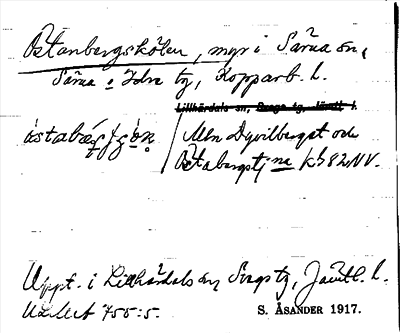 Östanbergskölen, myr i Särna sn,
Särna o Idre tg, Kopparb. l.
Lillhärdals sn, Svegs tg, Jämtl. l.
Mln Dyvilberget och
Östabergstj na kb 82 NV.
Uppt. i Lillhärdals sn, Svegs tg, Jämtl. l.
S. ÅSANDER 1917.